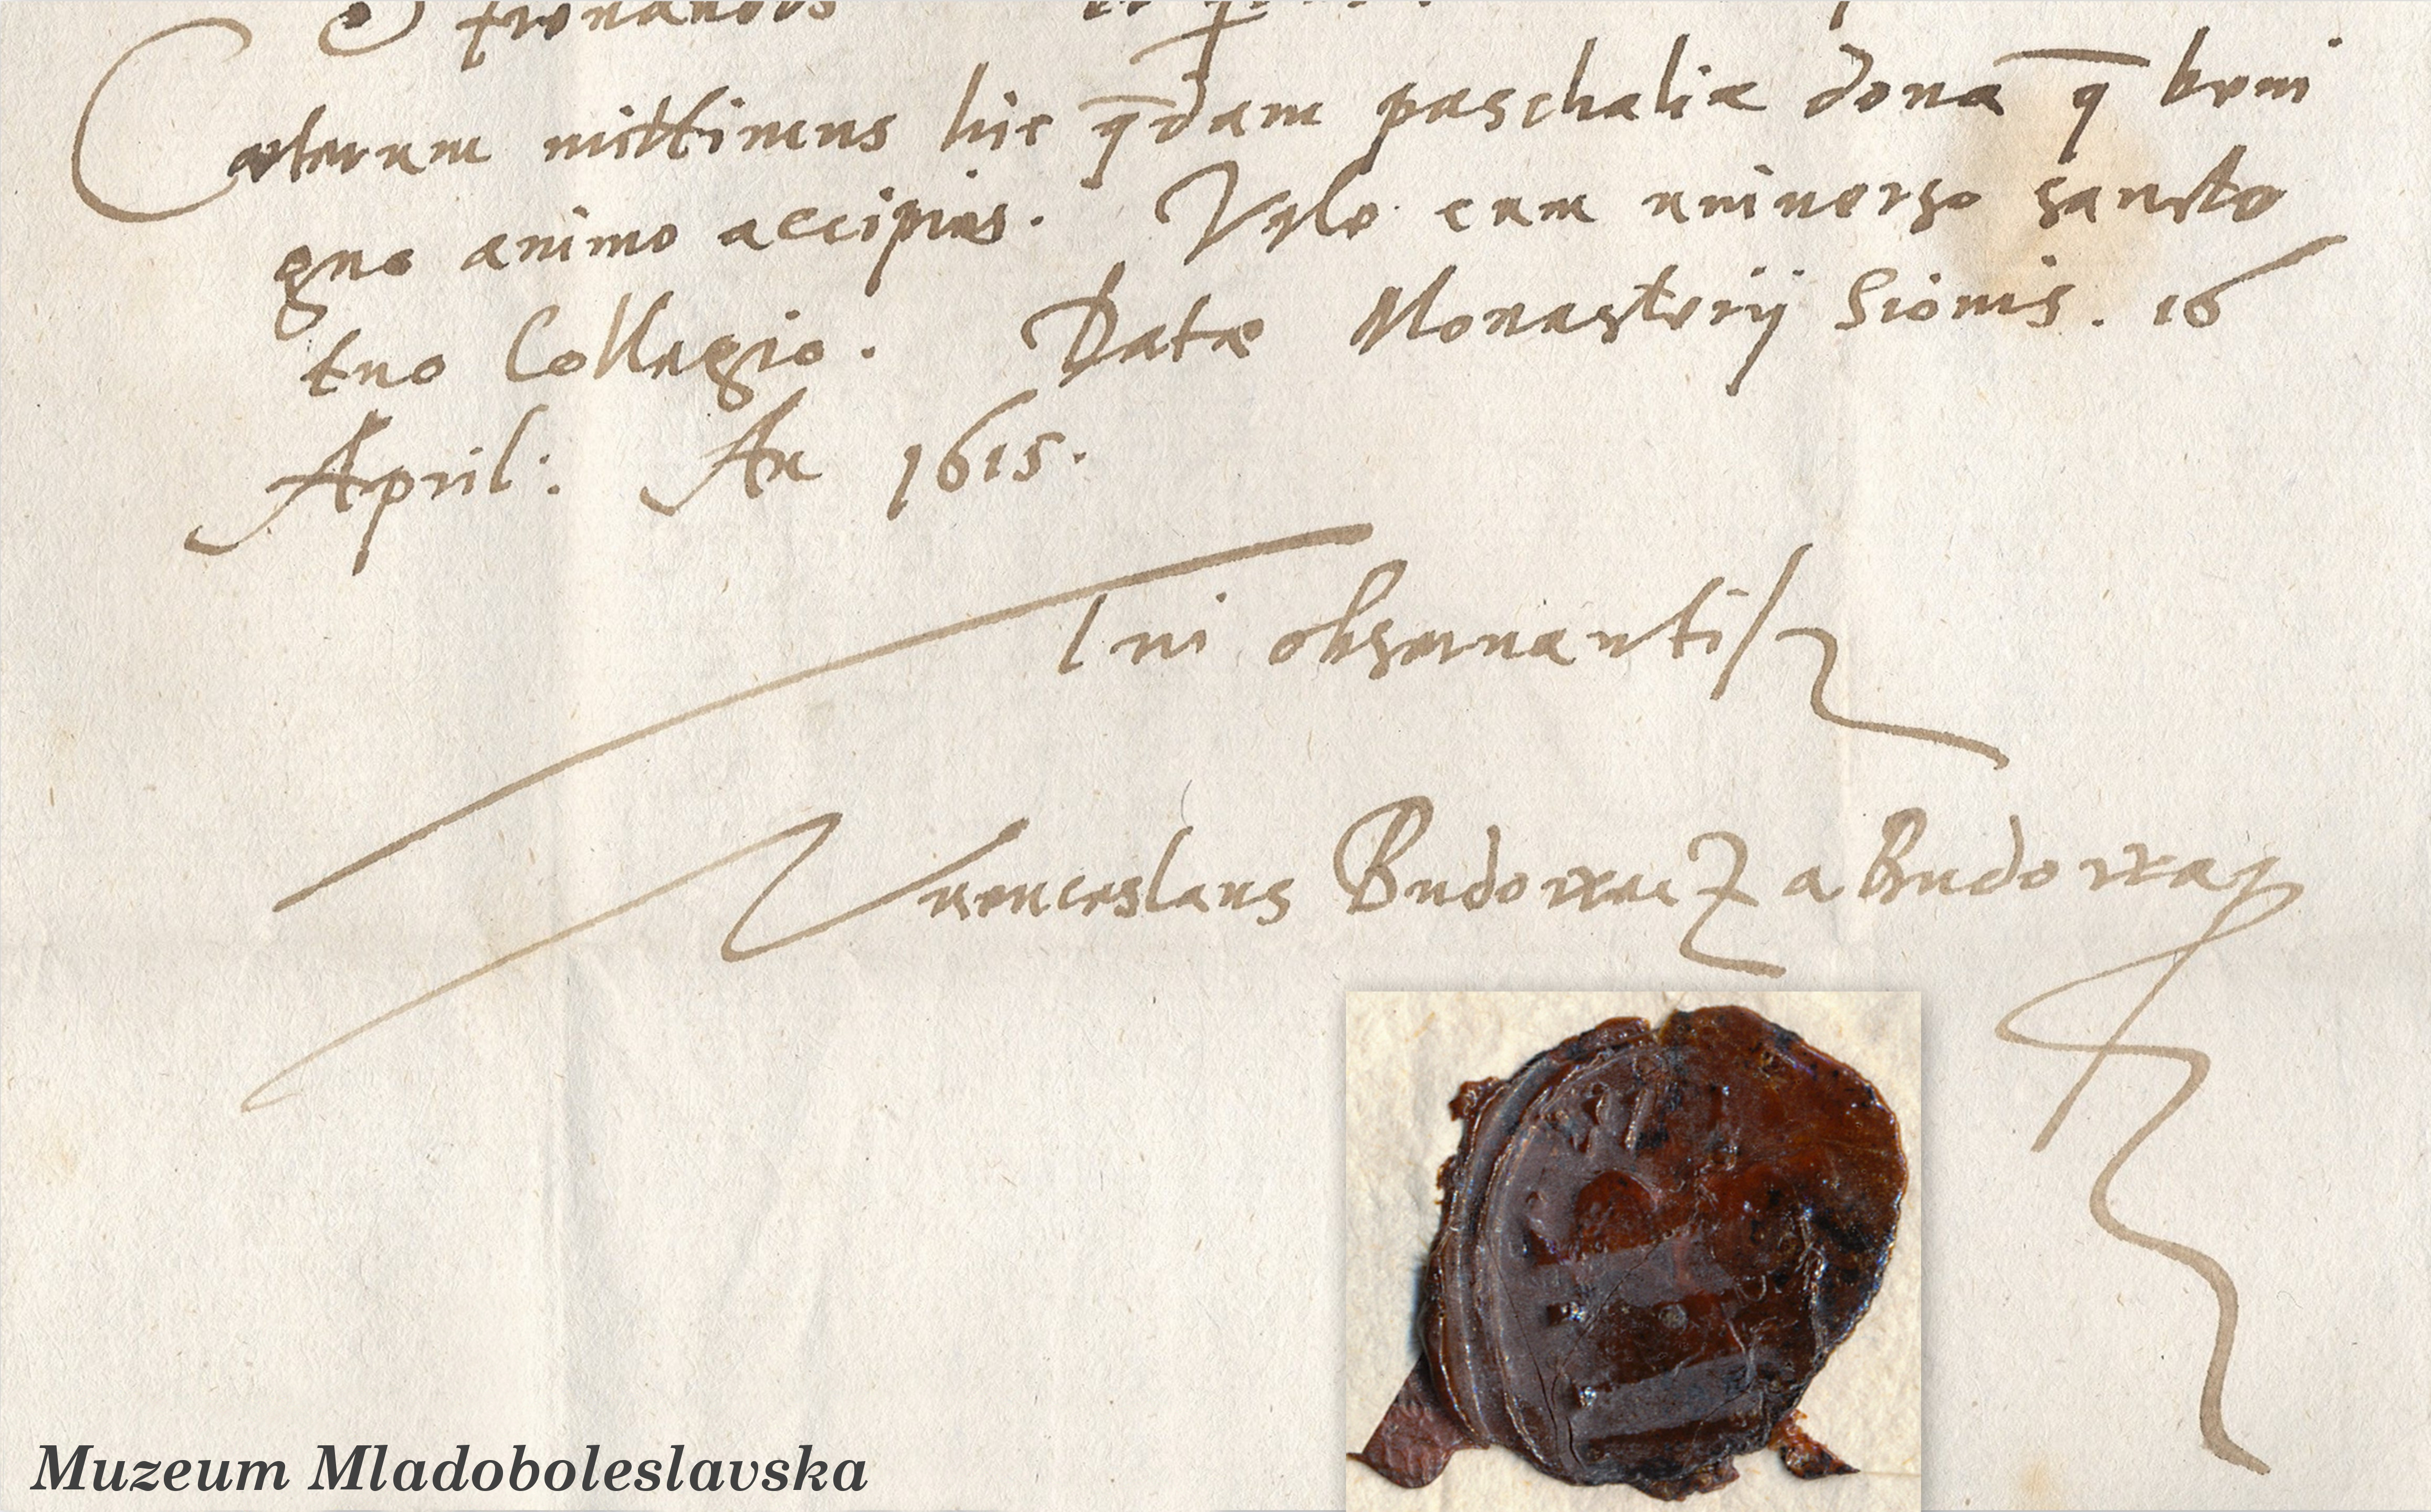 Caeterum mittimus hic q̄dam paschalia dona q̄ beni
gno animo accipias. Vale cum universo sancto
tuo Collegio. Datae Monasterij Sionis. 16
April: An 1615.
Tui observantiss
Wenceslaus Budowecz a Budowa
Muzeum Mladoboleslavska